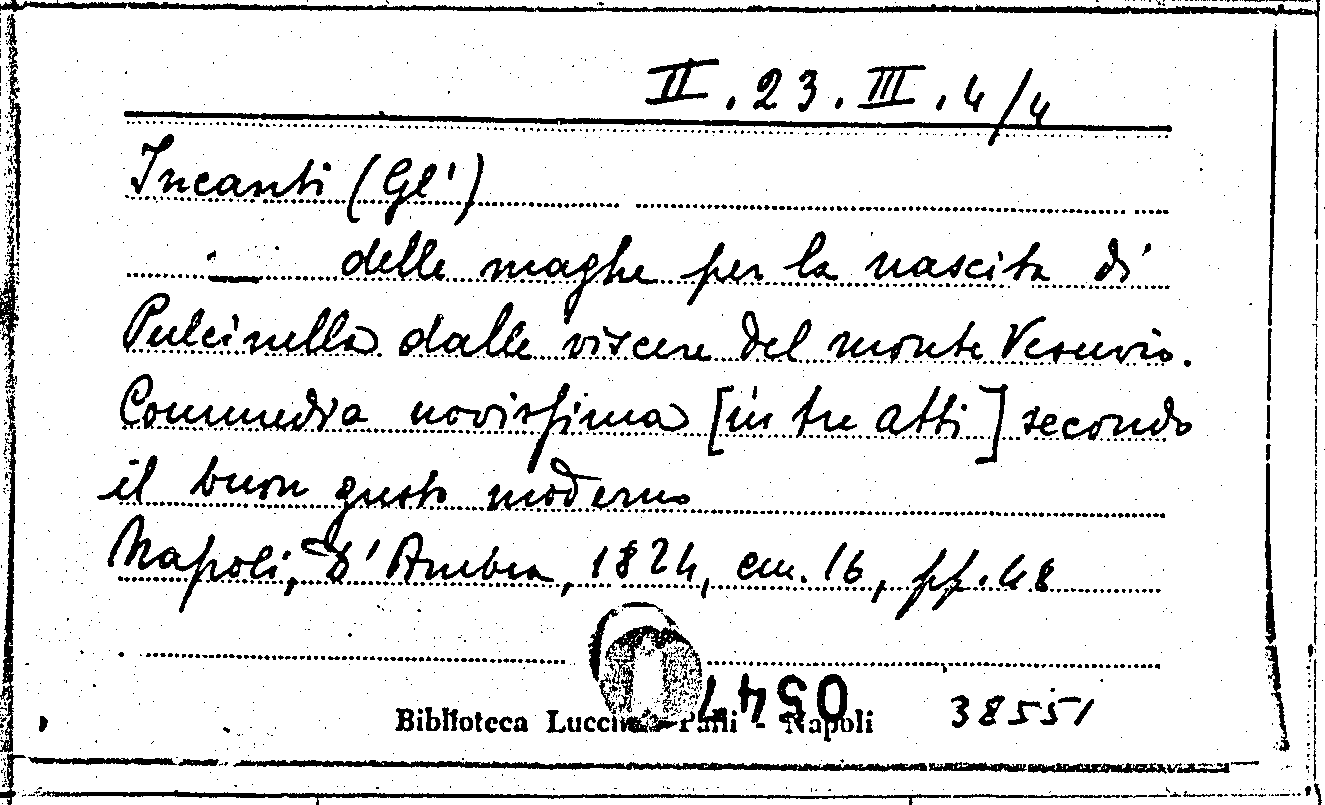 II.23.III.4/4
Incanti (Gl')
— delle maghe per la nascita di
Pulcinella dalle viscere del monte Vesuvio.
Commedia novissima [in tre atti] secondo
il buon gusto moderno
Napoli, D'Ambra, 1824, cm. 16, pp. 48
0547
Biblioteca Lucchesi Palli - Napoli 38551